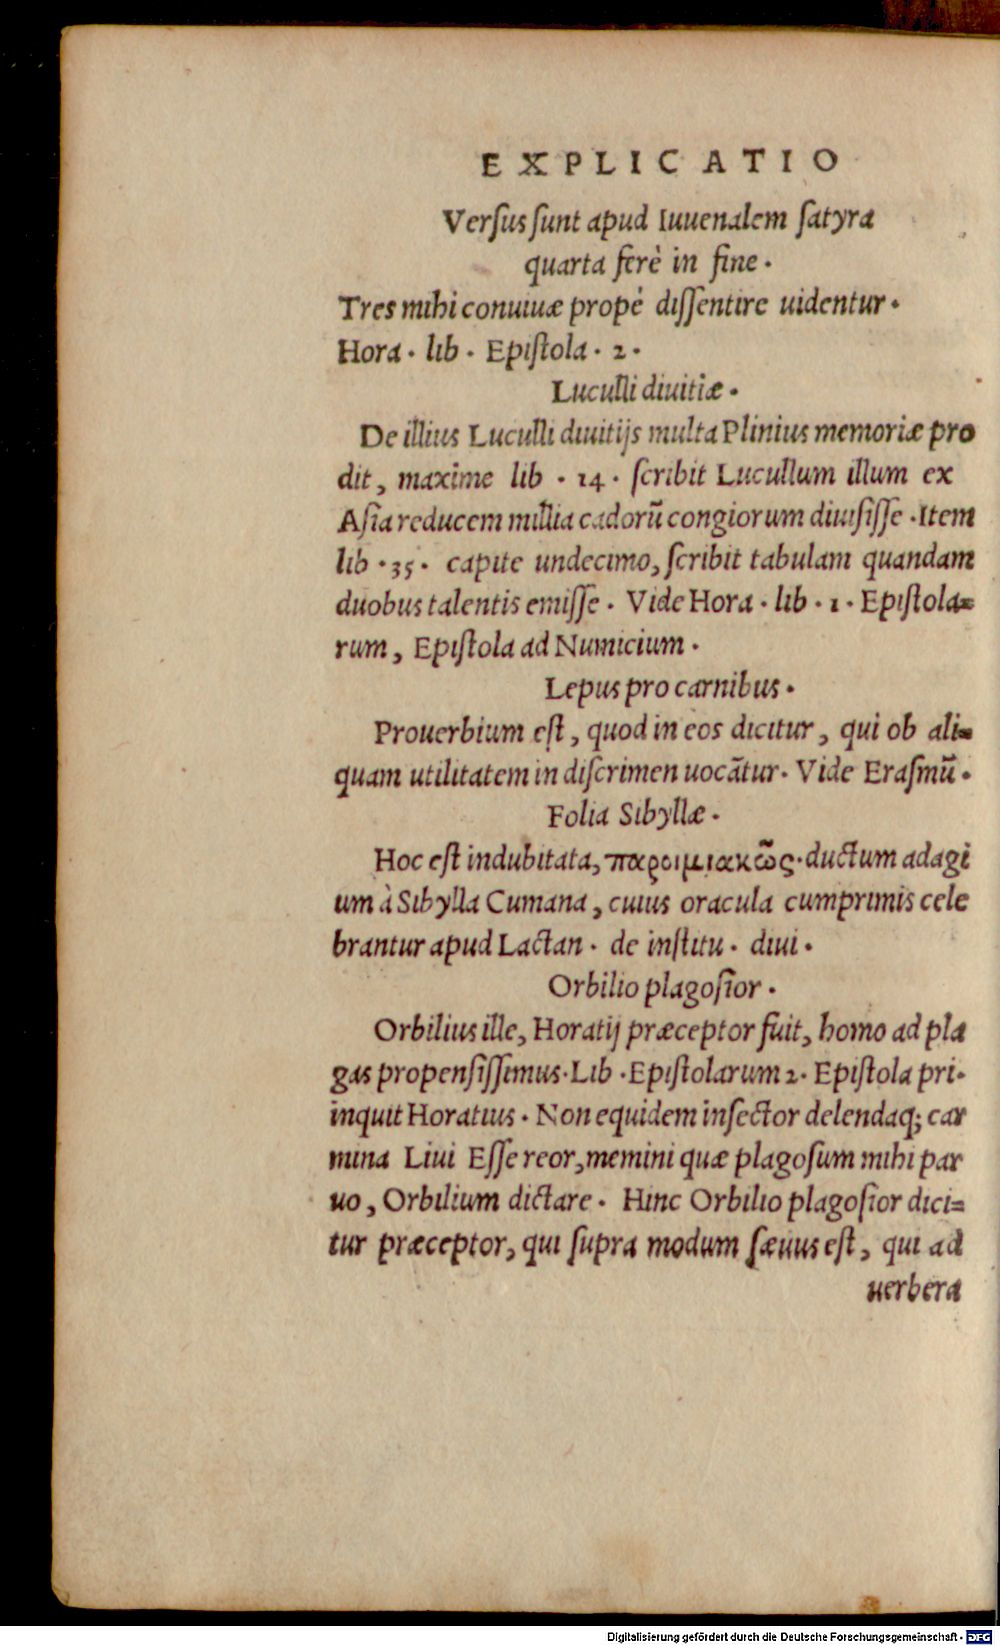 EXPLICATIO
Verſus ſunt apud Iuuenalem ſatyra
quarta ferè in fine.
Tres mihi conuiuæ propè diſſentire uidentur.
Hora. lib. Epiſtola. 2.
Luculli diuitiæ.
De illius Luculli diuitijs multa Plinius memoriæ pro
dit, maxime lib. 14. ſcribit Lucullum illum ex
Aſia reducem millia cadorũ congiorum diuiſiſſe. Item
lib. 35. capite undecimo, ſcribit tabulam quandam
duobus talentis emiſſe. Vide Hora. lib. 1. Epiſtola=
rum, Epiſtola ad Numicium.
Lepus pro carnibus.
Prouerbium eſt, quod in eos dicitur, qui ob ali=
quam utilitatem in diſcrimen uocãtur. Vide Eraſmũ.
Folia Sibyllæ.
Hoc eſt indubitata, παροιμιακῶς. ductum adagi
um à Sibylla Cumana, cuius oracula cumprimis cele
brantur apud Lactan. de inſtitu. diui.
Orbilio plagoſior.
Orbilius ille, Horatij præceptor fuit, homo ad pla
gas propenſiſſimus. Lib. Epiſtolarum 2. Epiſtola pri.
inquit Horatius. Non equidem inſector delendaq; car
mina Liui Eſſe reor, memini quæ plagoſum mihi par
uo, Orbilium dictare. Hinc Orbilio plagoſior dici=
tur præceptor, qui ſupra modum ſæuus eſt, qui ad
uerbera
Digitalisierung gefördert durch die Deutsche Forschungsgemeinschaft - DFG